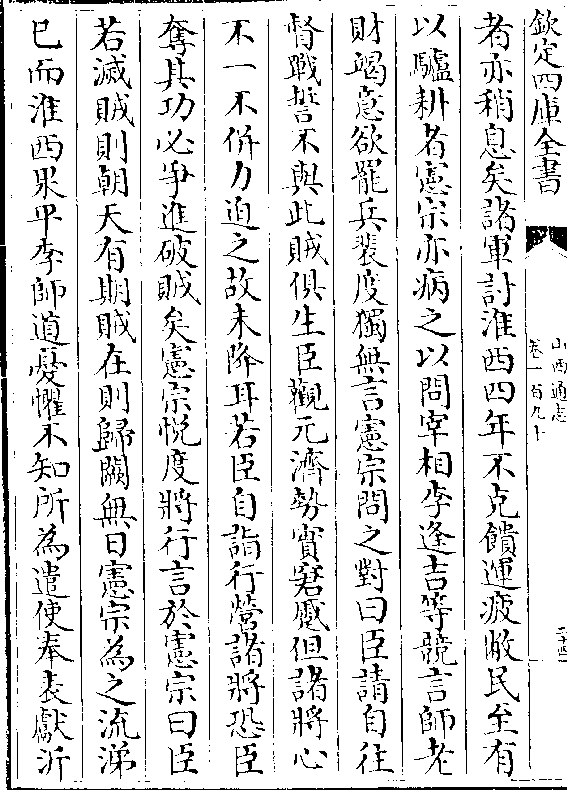 欽定四庫全書
山西通志
卷一百九十
二十四
者亦稍息矣諸軍討淮西四年不克饋運疲敝民至有
以驢耕者憲宗亦病之以問宰相李逢吉等競言師老
財竭意欲罷兵裴度獨無言憲宗問之對曰臣請自往
督戰誓不與此賊俱生臣觀元濟勢實窘蹙但諸將心
不一不併力迫之故未降耳若臣自詣行營諸將恐臣
奪其功必爭進破賊矣憲宗悅度將行言於憲宗曰臣
若滅賊則朝天有期賊在則歸闕無日憲宗為之流涕
已而淮西果平李師道憂懼不知所為遣使奉表獻沂